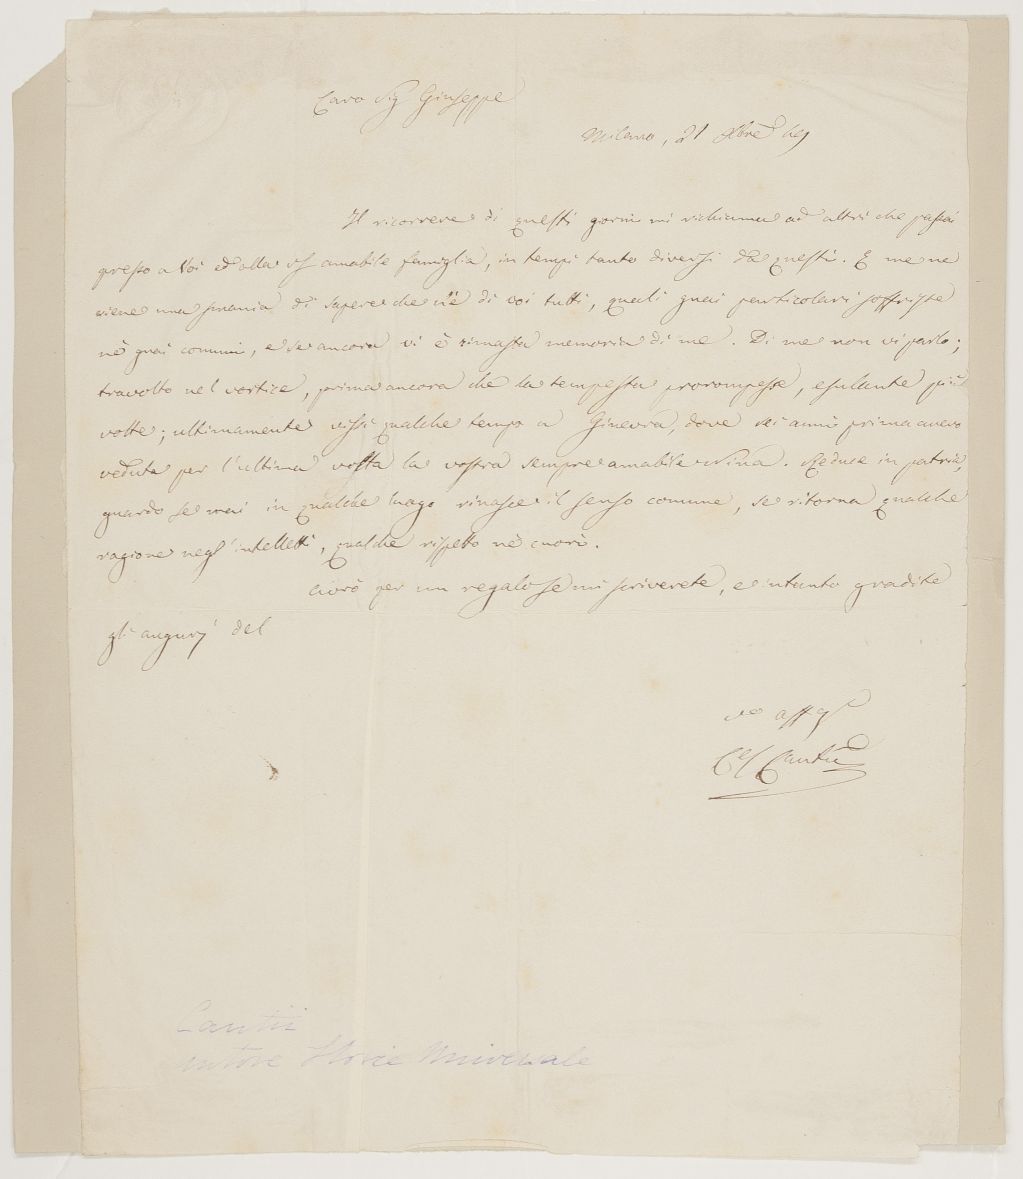 Caro Sig Giuseppe
Milano, 21 Xbre
Il ricorrere di questi giorni mi richiama ad altri che passai
presso a Voi ed alla vs amabile famiglia, in tempi tanto diversi da questi. E me ne
viene una smania di sapere che n'è di voi tutti, quali guai particolari soffriste
nè guai comuni, e se ancora vi è rimasta memoria di me. Di me non vi parlo;
travolto nel vortice, prima ancora che la tempesta prorompesse, esulante più
volte; ultimamente vissi qualche tempo a Ginevra, dove sei anni prima avevo
veduta per l'ultima volta la vostra sempre amabile Nina. Reduce in patria,
guardo se mai in qualche luogo rinasce il senso comune, se ritorna qualche
ragione negl'intelletti, qualche rispetto nè cuori.
Avrò per un regalo se mi scriverete, e intanto gradite
gli augurj del
vo affmo
C Cantù
Cantù
autore Storie Universale